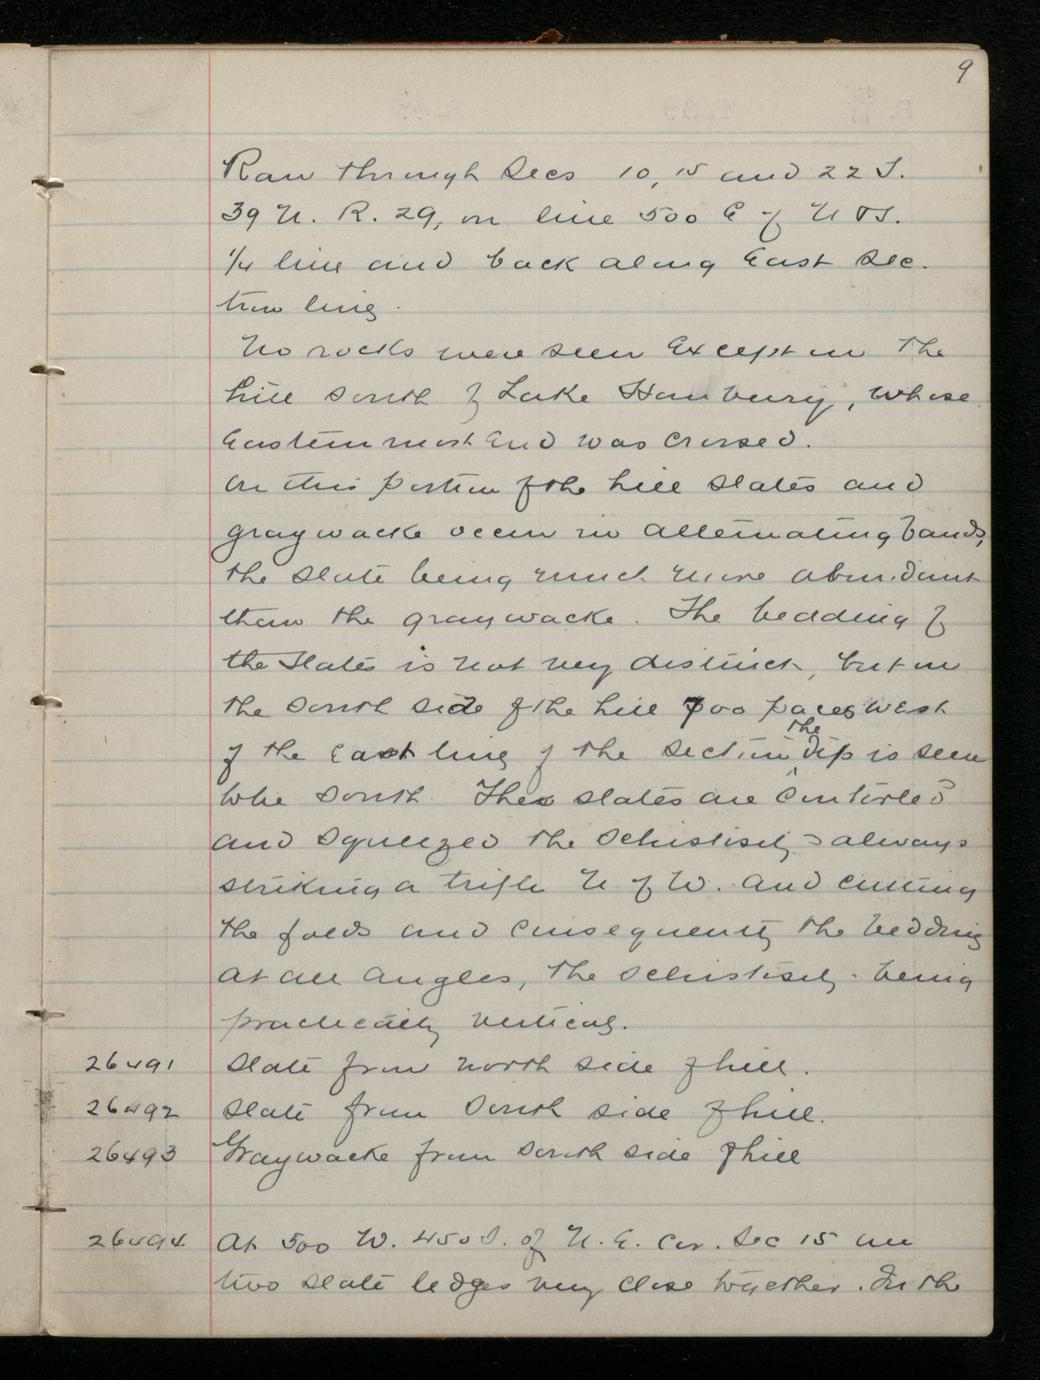 9
Ran through Secs 10, 15 and 22 T.
39 N. R. 29, on line 500 E of N & S.
1/4 line and back along East Sec.
tion line.
No rocks were seen Except on the
hill South of Lake Hanbury, whose
Easternmost End was crossed.
On this portion of the hill slates and
graywacke occur in alternating bands,
the slate being much more abundant
than the graywacke. The bedding of
the slates is not very distinct, but on
the South side of the hill 700 paces west
of the East line of the section the dip is seen
to be South. The slates are contorted
and squeezed the schistosity always
striking a trifle N of W. and cutting
the folds and consequently the bedding
at all angles, the schistosity being
practically vertical.
26491 Slate from north side of hill.
26492 Slate from South side of hill.
26493 Graywacke from South side of hill
26494 At 500 W. 450 S. of N. E. Cor. Sec 15 are
two slate ledges very close together. In the